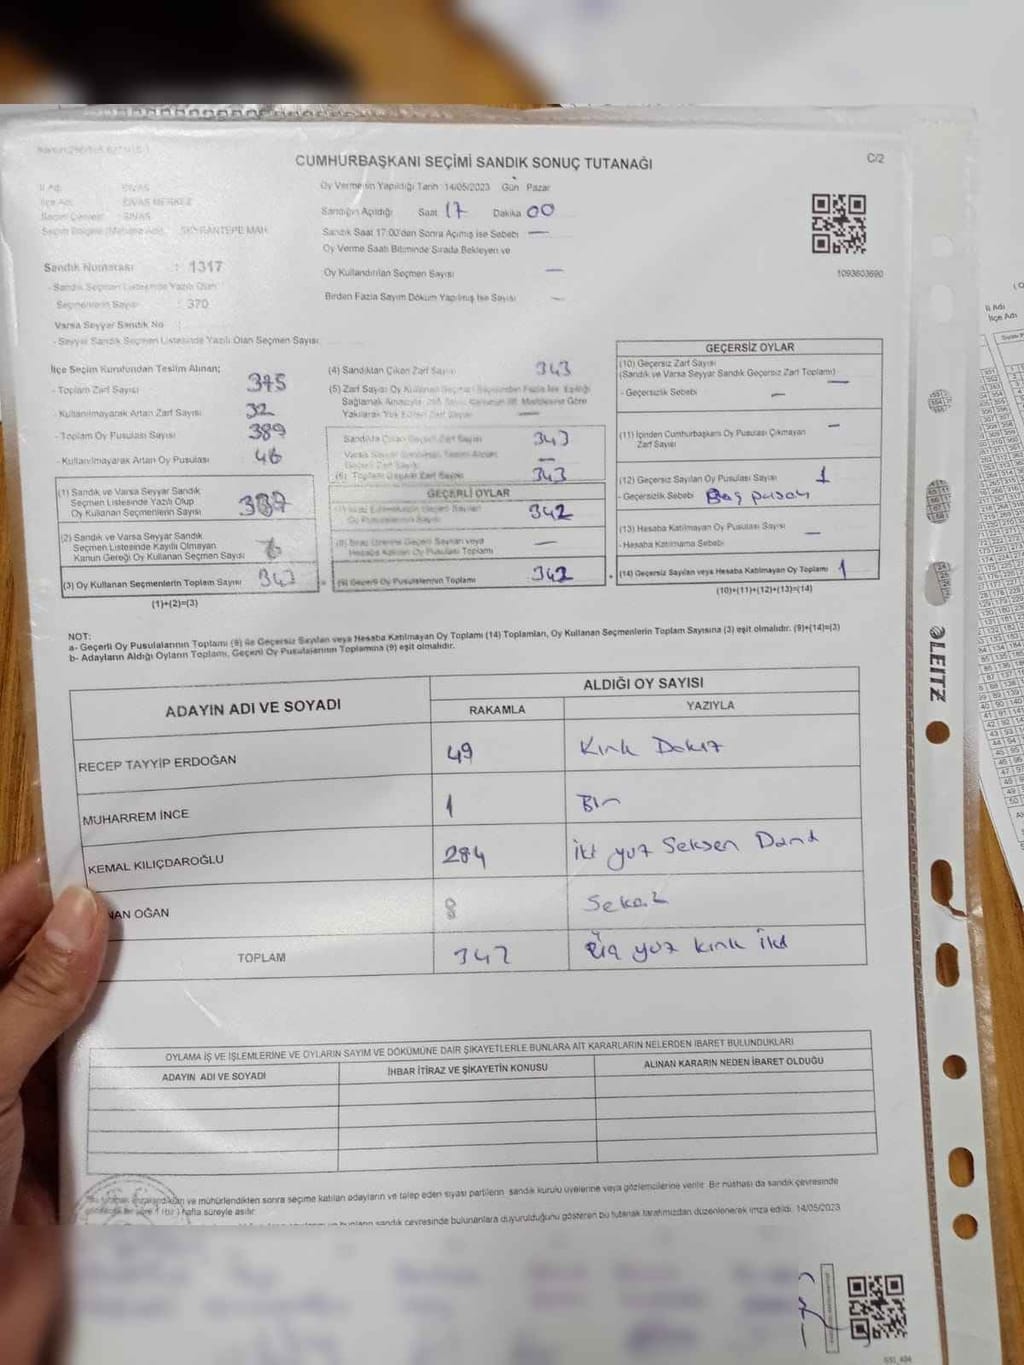 CUMHURBAŞKANI SEÇİMİ SANDIK SONUÇ TUTANAĞI
C/2
İl Adı : SİVAS
İlçe Adı : SİVAS MERKEZ
Seçim Çevresi : SİVAS
Sandık Numarası : 1317
- Sandık Seçmen Listesinde Yazılı Olan
Seçmenlerin Sayısı : 370
Varsa Seyyar Sandık No :
- Seyyar Sandık Seçmen Listesinde Yazılı Olan Seçmen Sayısı
Oy Vermenin Yapıldığı Tarih 14/05/2023 Gün Pazar
Sandığın Açıldığı Saat 17 Dakika 00
Sandık Saat 17:00'den Sonra Açılmış İse Sebebi —
Oy Verme Saati Bitiminde Sırada Bekleyen ve
Oy Kullandırılan Seçmen Sayısı —
Birden Fazla Sayım Döküm Yapılmış İse Sayısı —
1093603690
İlçe Seçim Kurulundan Teslim Alınan;
- Toplam Zarf Sayısı 375
- Kullanılmayarak Artan Zarf Sayısı 32
- Toplam Oy Pusulası Sayısı 389
- Kullanılmayarak Artan Oy Pusulası 46
(1) Sandık ve Varsa Seyyar Sandık
Seçmen Listesinde Yazılı Olup
Oy Kullanan Seçmenlerin Sayısı
(2) Sandık ve Varsa Seyyar Sandık
Seçmen Listesinde Kayıtlı Olmayan
Kanun Gereği Oy Kullanan Seçmen Sayısı
(3) Oy Kullanan Seçmenlerin Toplam Sayısı 343
(1)+(2)=(3)
(4) Sandıktan Çıkan Zarf Sayısı 343
(5) Zarf Sayısı Oy Kullanan Seçmen Sayısından Fazla İse, Eşitliği
Yakılarak Yok Edilen Zarf Sayısı —
Sandıkta Çıkan Geçerli Zarf Sayısı 343
(6) Toplam Geçerli Zarf Sayısı 343
GEÇERLİ OYLAR
Oy Pusulasının Sayısı 342
Hesaba Katılan Oy Pusulası Toplamı —
(9) Geçerli Oy Pusulalarının Toplamı 342
GEÇERSİZ OYLAR
(10) Geçersiz Zarf Sayısı
(Sandık ve Varsa Seyyar Sandık Geçersiz Zarf Toplamı) —
- Geçersizlik Sebebi —
(11) İçinden Cumhurbaşkanı Oy Pusulası Çıkmayan —
Zarf Sayısı
(12) Geçersiz Sayılan Oy Pusulası Sayısı 1
- Geçersizlik Sebebi
(13) Hesaba Katılmayan Oy Pusulası Sayısı —
- Hesaba Katılmama Sebebi
(14) Geçersiz Sayılan veya Hesaba Katılmayan Oy Toplamı 1
(10)+(11)+(12)+(13)=(14)
NOT:
a- Geçerli Oy Pusulalarının Toplamı (9) ile Geçersiz Sayılan veya Hesaba Katılmayan Oy Toplamı (14) Toplamları, Oy Kullanan Seçmenlerin Toplam Sayısına (3) eşit olmalıdır. (9)+(14)=(3)
b- Adayların Aldığı Oyların Toplamı, Geçerli Oy Pusulalarının Toplamına (9) eşit olmalıdır.
ADAYIN ADI VE SOYADI
ALDIĞI OY SAYISI
RAKAMLA YAZIYLA
RECEP TAYYİP ERDOĞAN 49 Kırk Dokuz
MUHARREM İNCE 1 Bir
KEMAL KILIÇDAROĞLU 284 İki yüz Seksen Dört
NAN OĞAN 8 Sekiz
TOPLAM 342 Üç yüz kırk iki
OYLAMA İŞ VE İŞLEMLERİNE VE OYLARIN SAYIM VE DÖKÜMÜNE DAİR ŞİKAYETLERLE BUNLARA AİT KARARLARIN NELERDEN İBARET BULUNDUKLARI
ADAYIN ADI VE SOYADI İHBAR İTİRAZ VE ŞİKAYETİN KONUSU ALINAN KARARIN NEDEN İBARET OLDUĞU
ve mühürlendikten sonra seçime katılan adayların ve talep eden siyasi partilerin sandık kurulu üyelerine veya gözlemcilerine verilir. Bir nüshası da sandık çevresinde
hafta süreyle asılır.
sandık çevresinde bulunanlara duyurulduğunu gösteren bu tutanak tarafımızdan düzenlenerek imza edildi. 14/05/2023
LEITZ
İl Adı
İlçe Adı